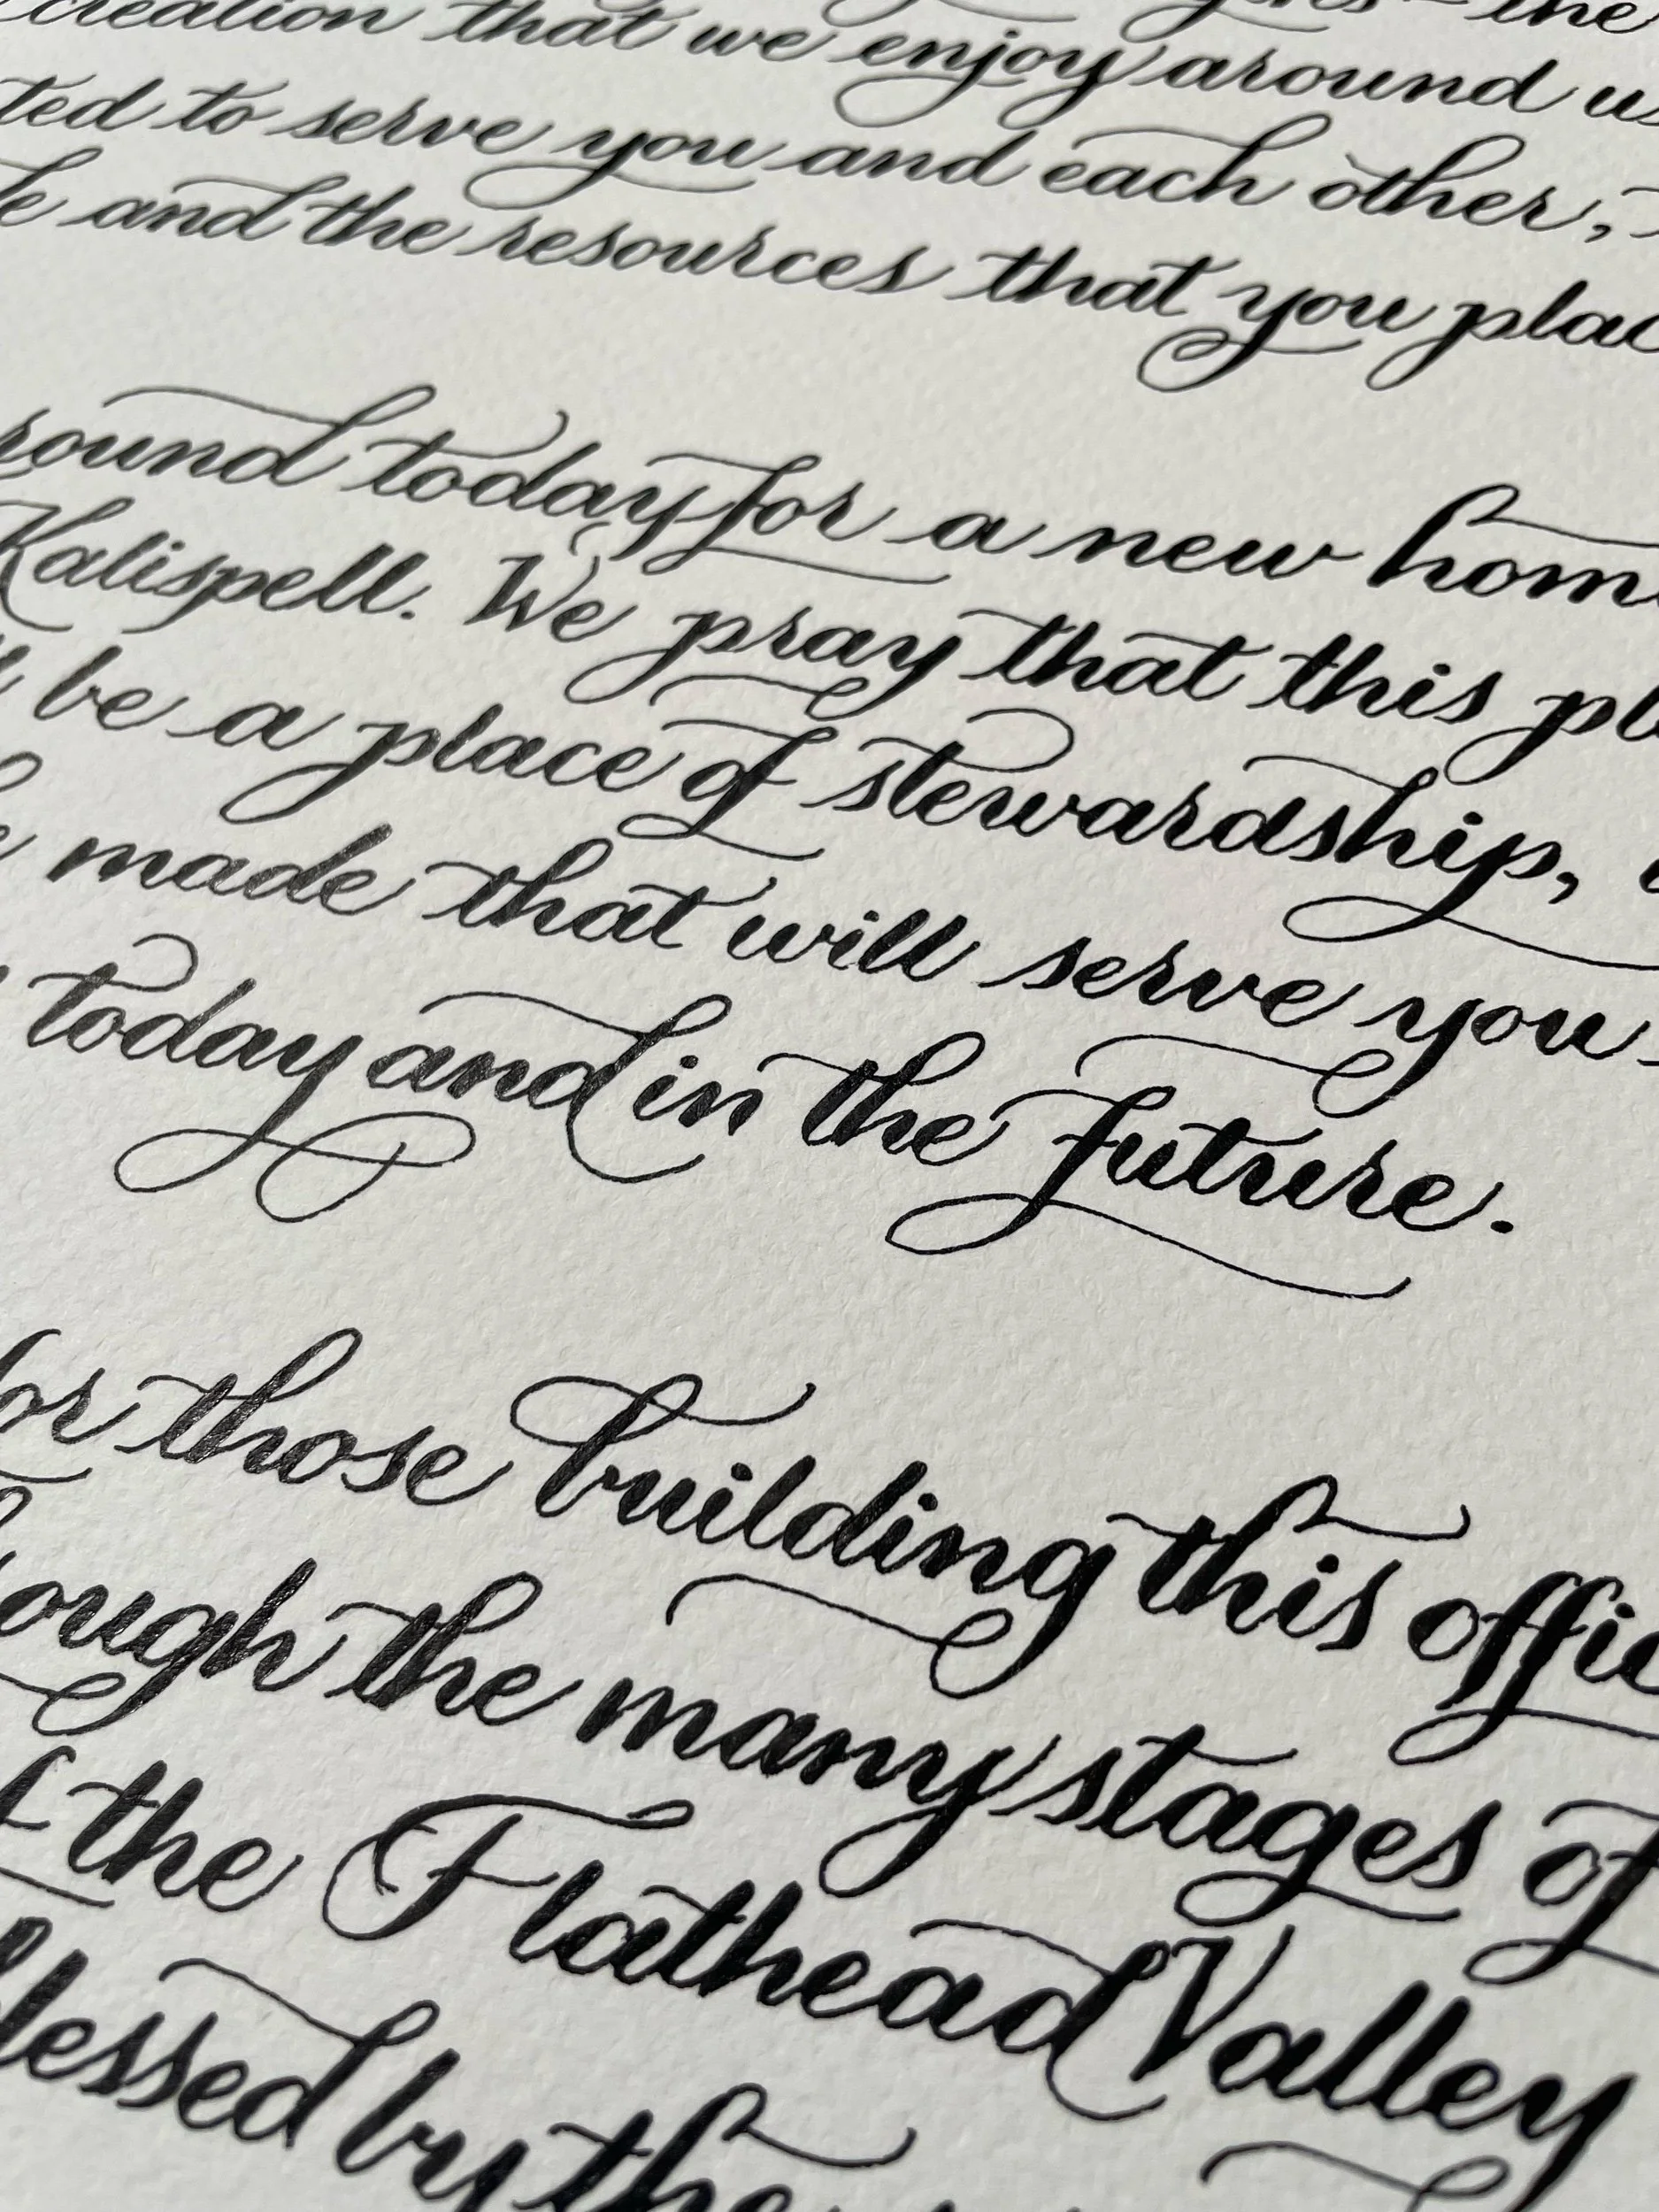 creation that we enjoy around us
to serve you and each other,
and the resources that you plac
round today for a new home
Kalispell. We pray that this pl
be a place of stewardship,
made that will serve you
today and in the future.
for those building this offic
ough the many stages of
the Flathead Valley
lessed by the